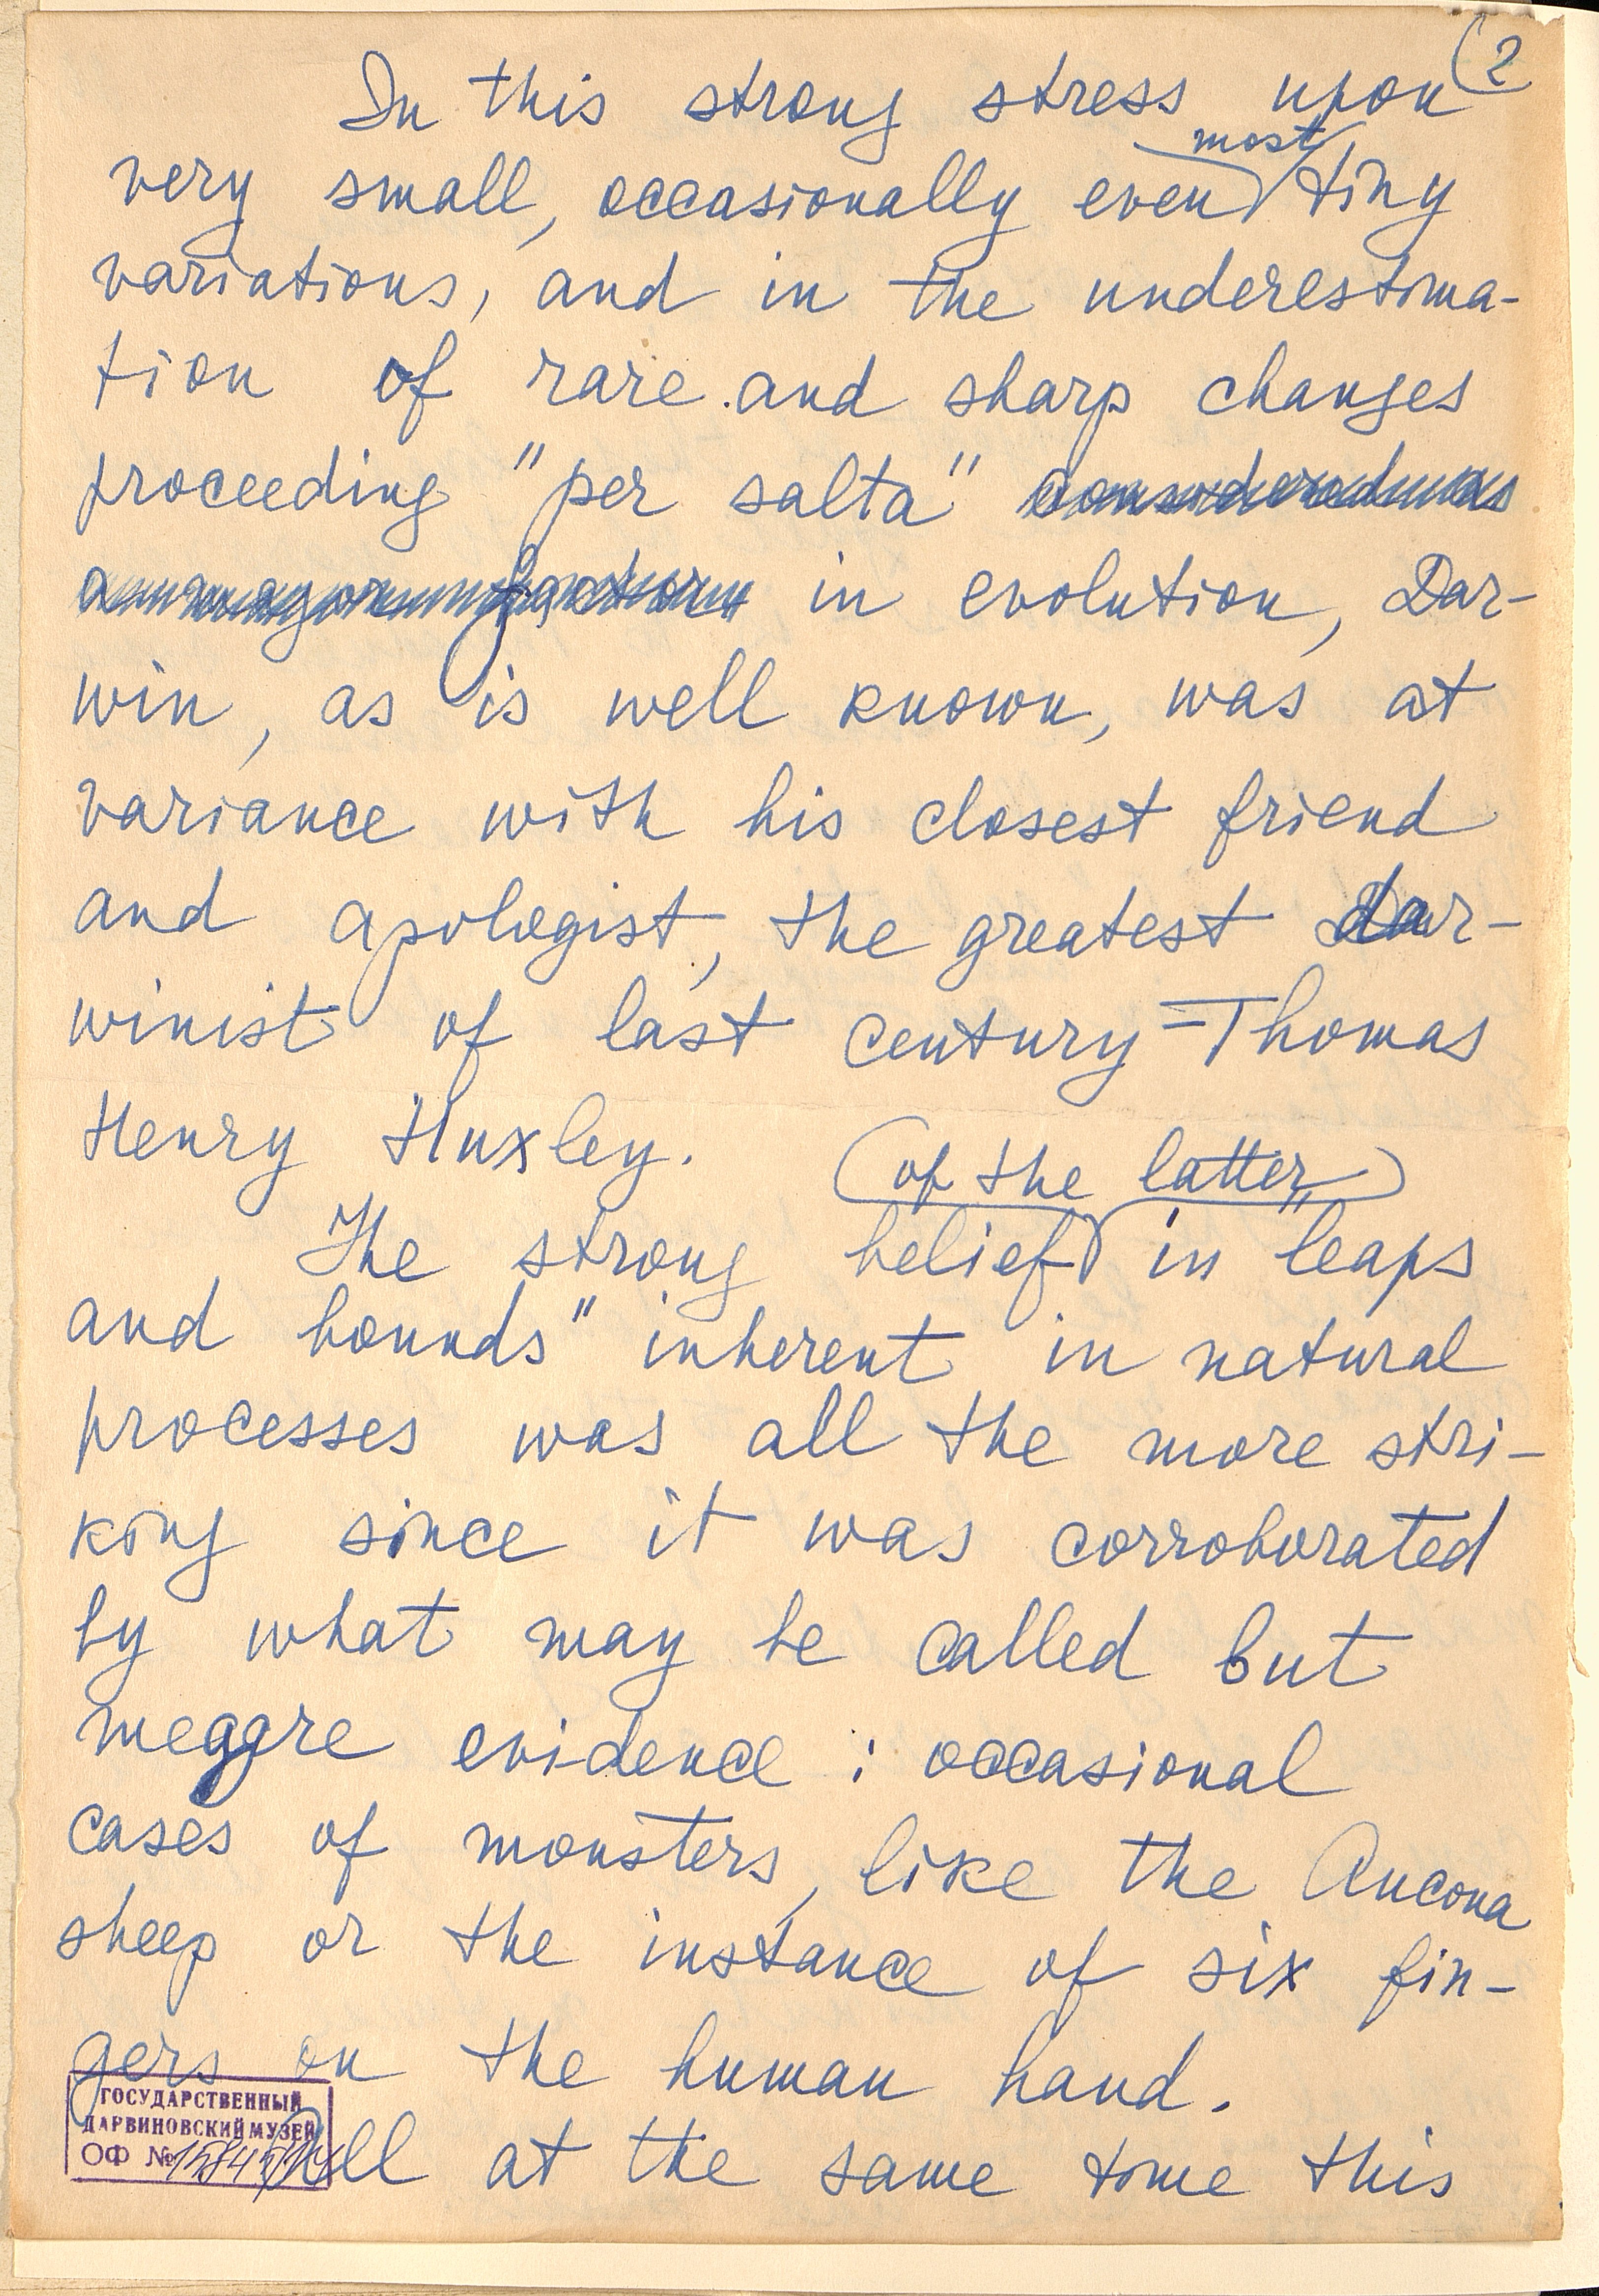 (2
In this strong stress upon
most
very small, occasionally even tiny
variations, and in the underestima-
tion of rare and sharp changes
proceeding "per salta"
in evolution, Dar-
win, as is well known, was at
variance with his closest friend
and apologist, the greatest Dar-
winist of last century = Thomas
Henry Huxley.
(of the latter)
The strong belief in "leaps
and bounds" inherent in natural
processes was all the more stri-
king since it was corroborated
by what may be called but
meagre evidence : occasional
cases of monsters, like the Ancona
sheep or the instance of six fin-
gers on the human hand.
ГОСУДАРСТВЕННЫЙ
ДАРВИНОВСКИЙ МУЗЕЙ
ОФ №
All at the same time this